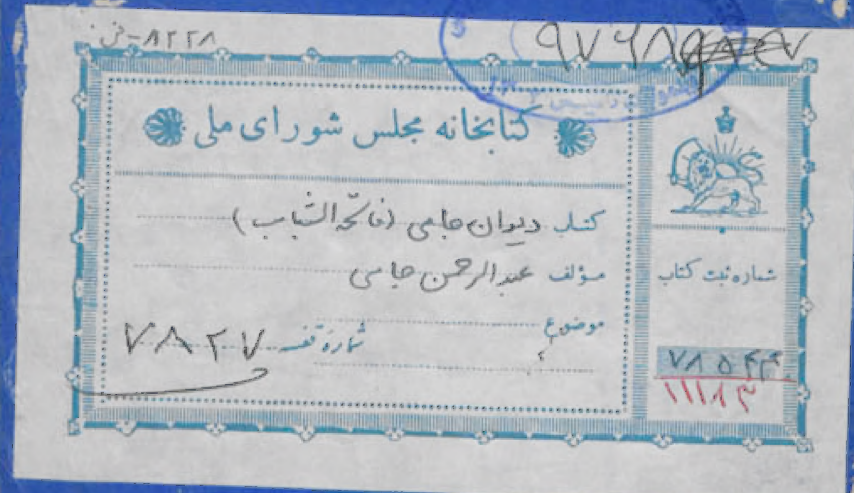 ۸۲۲۸-فن
۹۷۶۸
کتابخانه مجلس شورای ملی
کتاب دیوان جامی (فاتحة الشباب)
مؤلف عبدالرحمن جامی
موضوع
شماره قفسه ۷۸۲۷
شماره ثبت کتاب
۷۸۵۴۴
۱۱۱۸۳